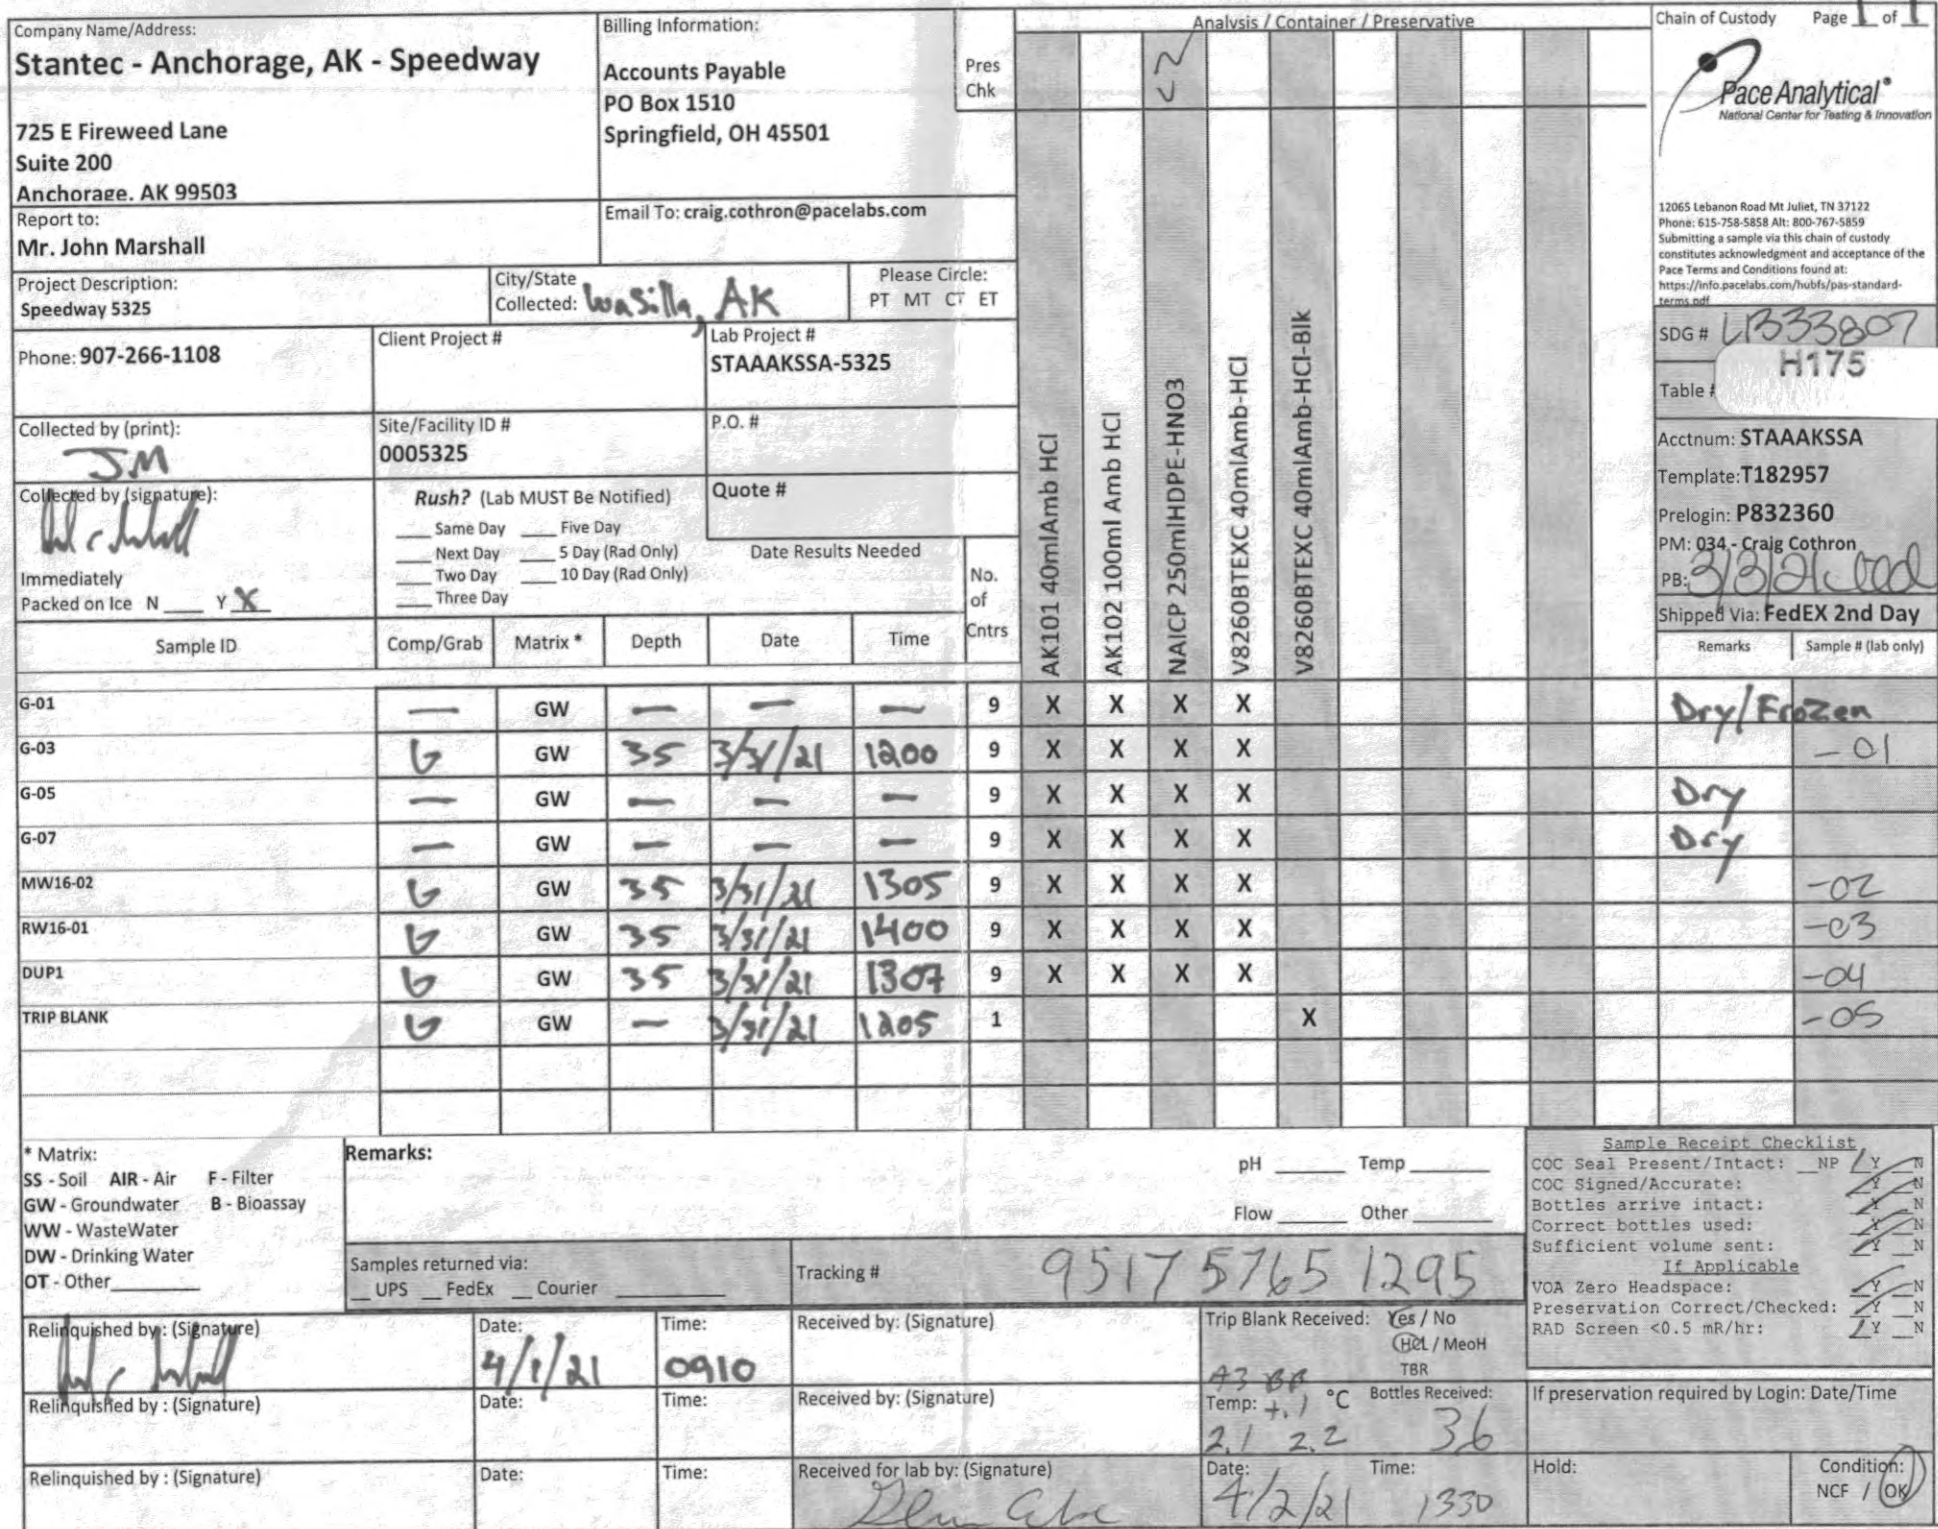 Company Name/Address:
Stantec - Anchorage, AK - Speedway
725 E Fireweed Lane
Suite 200
Anchorage, AK 99503
Billing Information:
Accounts Payable
PO Box 1510
Springfield, OH 45501
Pres
Chk
Analysis / Container / Preservative
Chain of Custody Page 1 of 1
Pace Analytical®
National Center for Testing & Innovation
12065 Lebanon Road Mt Juliet, TN 37122
Phone: 615-758-5858 Alt: 800-767-5859
Submitting a sample via this chain of custody
constitutes acknowledgment and acceptance of the
Pace Terms and Conditions found at:
https://info.pacelabs.com/hubfs/pas-standard-
terms.pdf
Report to:
Mr. John Marshall
Email To: craig.cothron@pacelabs.com
Project Description:
Speedway 5325
City/State
Collected: Wasilla, AK
Please Circle:
PT MT CT ET
SDG # L1333807
H175
Table #
Phone: 907-266-1108
Client Project #
Lab Project #
STAAAKSSA-5325
Collected by (print):
JM
Site/Facility ID #
0005325
P.O. #
Acctnum: STAAAKSSA
Template: T182957
Prelogin: P832360
PM: 034 - Craig Cothron
PB: 3/3/21
Shipped Via: FedEX 2nd Day
Collected by (signature):
Immediately
Packed on Ice N ___ Y X
Rush? (Lab MUST Be Notified)
___ Same Day ___ Five Day
___ Next Day ___ 5 Day (Rad Only)
___ Two Day ___ 10 Day (Rad Only)
___ Three Day
Quote #
Date Results Needed
No.
of
Cntrs
AK101 40mlAmb HCl
AK102 100ml Amb HCl
NAICP 250mlHDPE-HNO3
V8260BTEXC 40mlAmb-HCl
V8260BTEXC 40mlAmb-HCl-Blk
Sample ID Comp/Grab Matrix * Depth Date Time Remarks Sample # (lab only)
G-01 — GW — — — 9 X X X X Dry/Frozen
G-03 G GW 35 3/31/21 1200 9 X X X X -01
G-05 — GW — — — 9 X X X X Dry
G-07 — GW — — — 9 X X X X Dry
MW16-02 G GW 35 3/31/21 1305 9 X X X X -02
RW16-01 G GW 35 3/31/21 1400 9 X X X X -03
DUP1 G GW 35 3/31/21 1307 9 X X X X -04
TRIP BLANK G GW — 3/31/21 1205 1 X -05
* Matrix:
SS - Soil AIR - Air F - Filter
GW - Groundwater B - Bioassay
WW - WasteWater
DW - Drinking Water
OT - Other
Remarks:
pH ___ Temp ___
Flow ___ Other ___
Samples returned via:
__ UPS __ FedEx __ Courier
Tracking # 9517 5765 1295
Sample Receipt Checklist
COC Seal Present/Intact: __NP Y __N
COC Signed/Accurate: Y N
Bottles arrive intact: Y N
Correct bottles used: Y N
Sufficient volume sent: Y N
If Applicable
VOA Zero Headspace: Y N
Preservation Correct/Checked: Y N
RAD Screen <0.5 mR/hr: Y N
Relinquished by : (Signature)
Date:
4/1/21
Time:
0910
Received by: (Signature)
Trip Blank Received: Yes / No
HCL / MeoH
TBR
Relinquished by : (Signature)
Date:
Time:
Received by: (Signature)
A3
Temp: +.1 °C
2.1 2.2
Bottles Received:
36
If preservation required by Login: Date/Time
Relinquished by : (Signature)
Date:
Time:
Received for lab by: (Signature)
Date:
4/2/21
Time:
1330
Hold:
Condition:
NCF / OK